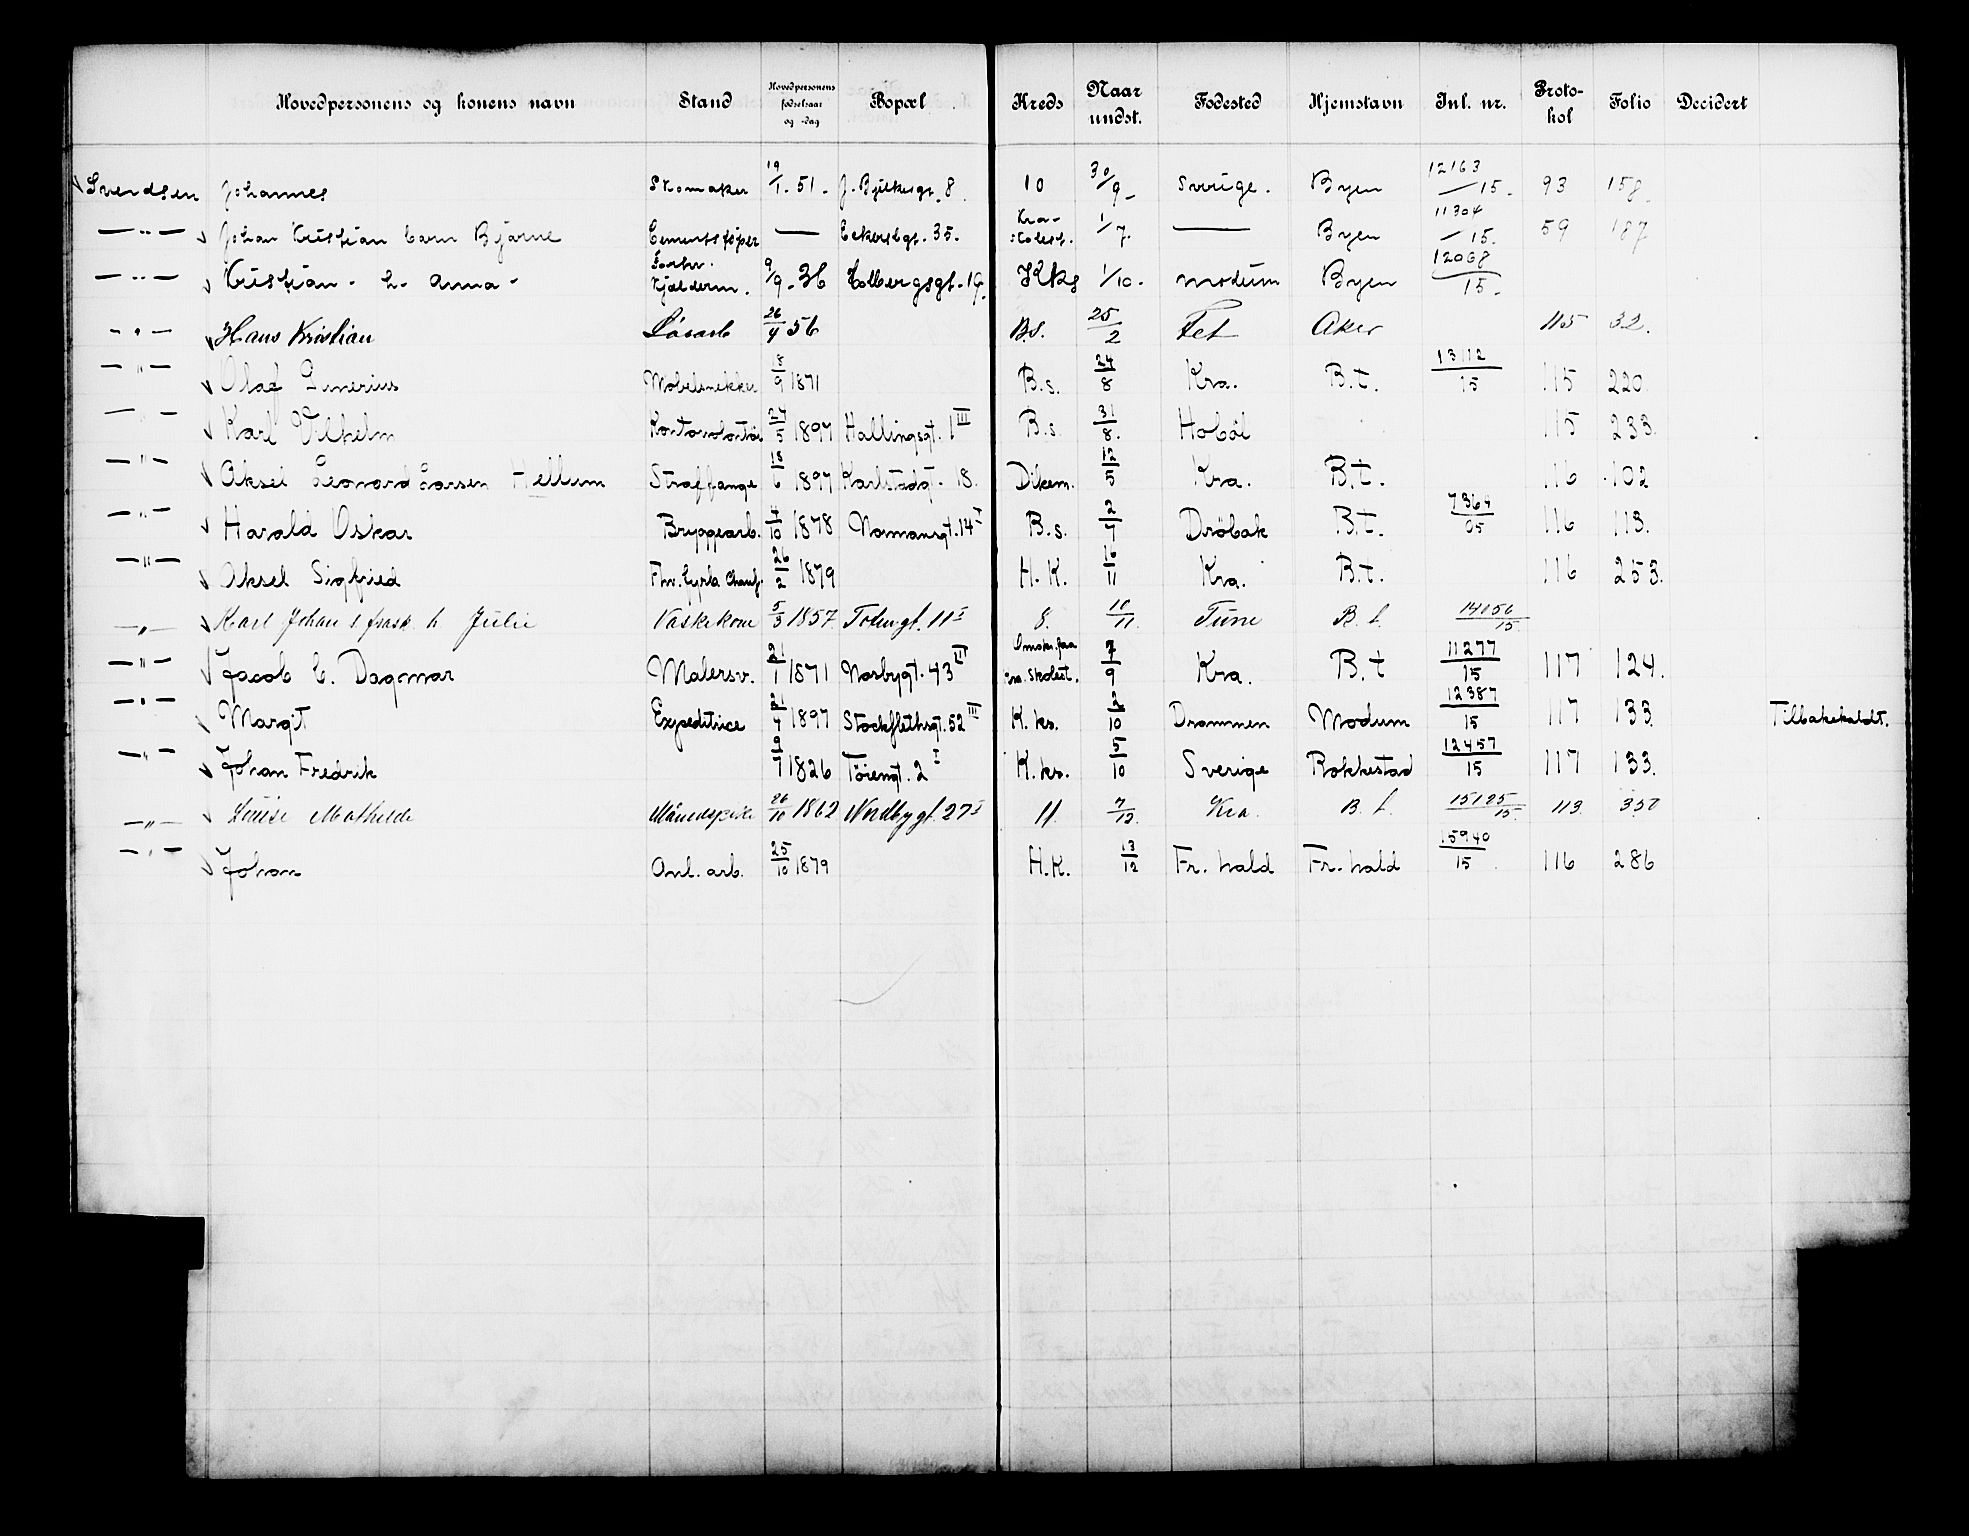 Hovedpersonens og konens navn Stand Hovedpersonens fødselsaar og -dag Bopæl Kreds Naar undst. Fødested Hjemstavn Inl. nr. Protokol Folio Decidert
Svendsen Johannes Skomaker 19/1. 51. J. Bjelkesgt. 8. 10 30/9 Sverige. Byen 12163/15. 93 158.
— " — Johan Kristian barn Bjarne Cementstøper — Eckersbgt. 35. Kra. Skolest. 1/7. — Byen 11304/15. 59 187
— " — Kristian. h. Anna Forhv. Kjælderm. 9/9. 36 Holbergsgt. 19. Kks 1/10. Modum Byen 12068/15.
— " — Hans Kristian Løsarb 26/4 56 B.s. 25/2 Fet Aker 115 32.
— " — Olaf Enerius Møbelsnekker 18/9 1871 B.s. 24/8 Kra. B.t. 13112/15 115 220
— " — Karl Vilhelm 24/5 1897 Hallingsgt. 1 III B.s. 31/8. Hobøl 115 233.
— " — Aksel Leonord Larsen Hellum Straffange 18/6 1897 Karlstadgt. 18. Dikem. 12/5 Kra. B.t. 116 102
— " — Harald Oskar Bryggearb. 4/10 1878 Normansgt. 14 I B.s. 2/7 Drøbak B.t. 7364/05 116 113.
— " — Aksel Sigfried 26/2 1879 H.K. 16/11 Kra. B.t. 116 253.
— " — Karl Johan s frask. h Julie Vaskekone 5/3 1857. Totengt. 11 I 8. 10/11. Tune B.t. 14056/15.
— " — Jacob E. Dagmar Malersv. 21/1 1871 Norbygt. 43 III Omsk. fra Kra. Skolest. 7/9 Kra. B.t 11277/15 117 124.
— " — Margit Expeditrice 21/4 1897 Stockflethsgt. 52 III K. ks. 2/10 Drammen Modum 12387/15 117 133. Tilbakekaldt.
— " — Johan Fredrik 9/7 1826 Tøiengt. 2 I K. ks. 5/10 Sverige Rokkestad 12457/15 117 133.
— " — Louise Mathilde 26/10 1862 Nordbygt. 27 I 11. 7/12. Kra. B.t. 15125/15. 113 350
— " — Johan Anl. arb. 25/10 1879 H.K. 13/12 Fr. hald Fr. hald 15940/15. 116 286